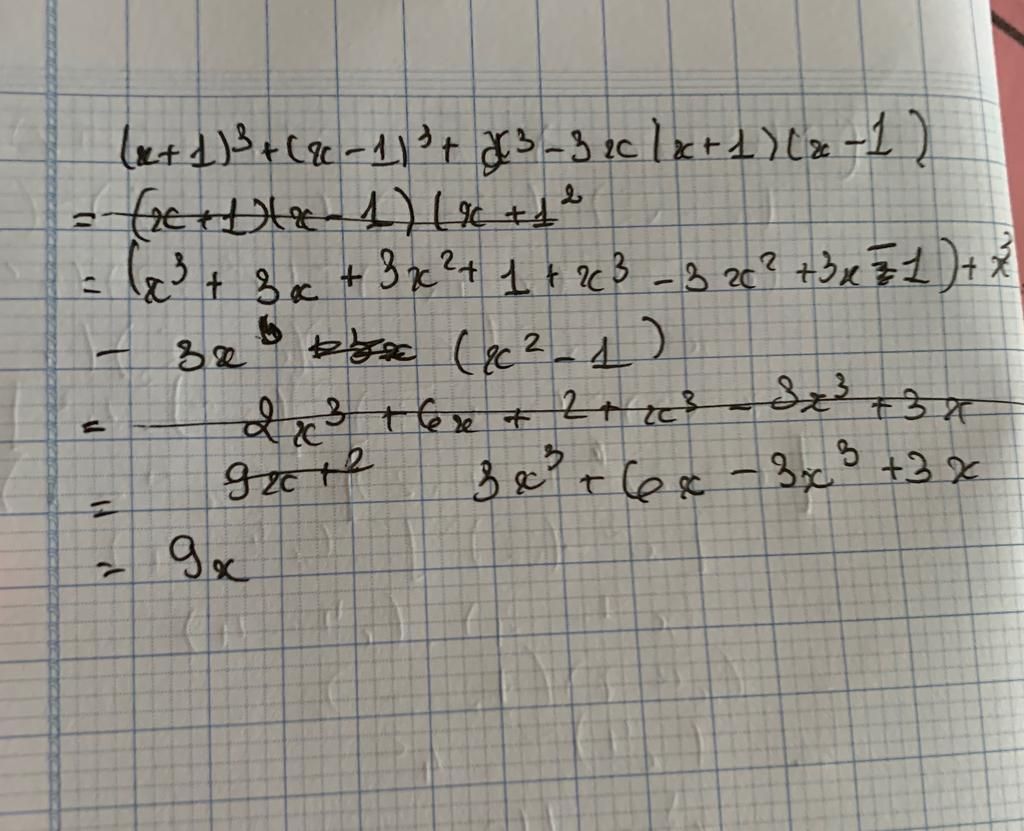 (x+1)³+(x-1)³+ x³-3x(x+1)(x-1)
= (x+1)(x-1)(x+1²
= (x³ + 3x + 3x²+ 1 + x³ - 3x² +3x -1)+ x³
- 3x (x² - 1)
= 2x³ + 6x + 2 + x³ - 3x³ + 3x
= 9x+2 3x³ + 6x - 3x³ +3x
= 9x